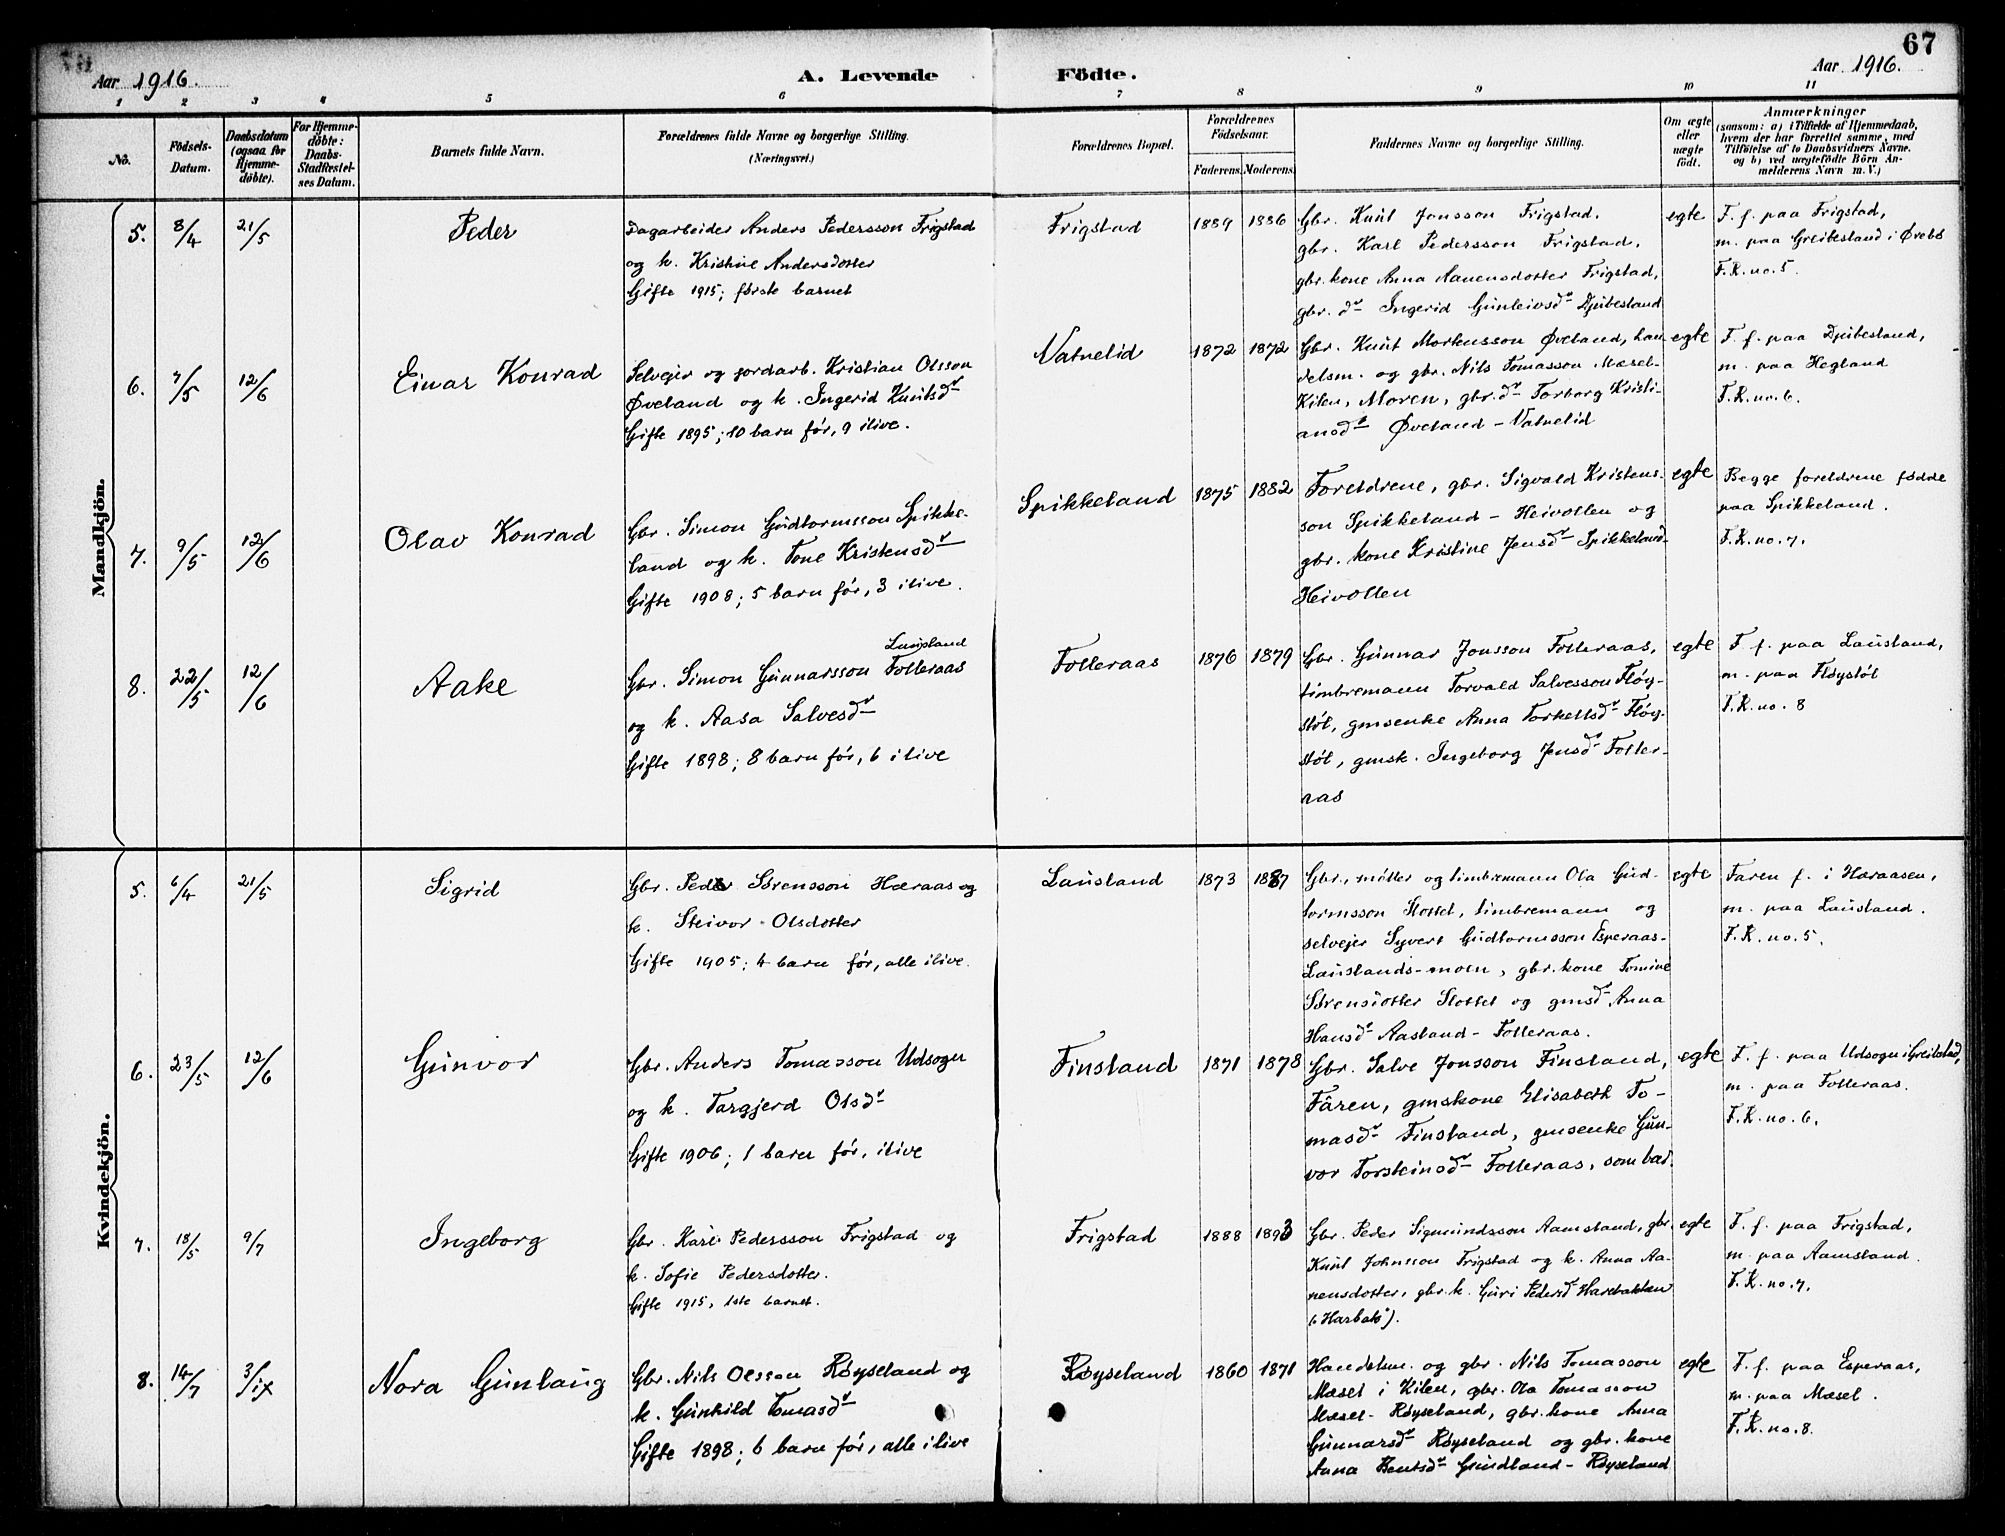 67
Aar 1916.
A. Levende Födte.
Aar 1916.
1 2 3 4 5 6 7 8 9 10 11
No.
Födsels-Datum.
Daabsdatum (ogsaa for Hjemme-döbte).
For Hjemme-döbte: Daabs-Stadfæstel-ses Datum.
Barnets fulde Navn.
Forældrenes fulde Navne og borgerlige Stilling.
(Næringsvei.)
Forældrenes Bopæl.
Forældrenes Födselsaar.
Faderens. Moderens.
Faddernes Navne og borgerlige Stilling.
Om ægte eller uægte födt.
Anmærkninger
(saasom: a) i Tilfælde af Hjemmedaab,
hvem der har forrettet samme, med
Tilföielse af to Daabsvidners Navne,
og b) ved uægtefödte Börn An-
melderens Navn m. V.)
Mandkjön.
5. 8/4 21/5 Peder
Dagarbeider Anders Pedersson Frigstad
og k. Kristine Andersdotter
Gifte 1915; første barnet
Frigstad 1889 1886
Gbr. Knut Jonsson Frigstad,
gbr. Karl Pedersson Frigstad,
gbr. kone Anna Aanensdotter Frigstad,
gbr. dr Ingerid Gunleivsdr Djubesland
egte
F. f. paa Frigstad,
m. paa Greibesland i Øvebø
F.R. no. 5.
6. 7/5 12/6 Einar Konrad
Selvejer og jordarb. Kristian Olsson
Øveland og k. Ingerid Knutsdr
Gifte 1895; 10 barn før, 9 ilive.
Vatnelid 1872 1872
Gbr. Knut Mortensson Øveland, han-
delsm. og gbr. Nils Tomasson Mæsel-
Kilen, Moren, gbr. dr Torborg Kristi-
ansdr Øveland - Vatnelid
egte
F. f. paa Djubesland,
m. paa Hegland
F.R. no. 6.
7. 9/5 12/6 Olav Konrad
Gbr. Simon Gudtormsson Spikke-
land og k. Tone Kristensdr
Gifte 1908; 5 barn før, 3 ilive.
Spikkeland 1875 1882
Foreldrene, gbr. Sigvald Kristens-
son Spikkeland - Heivollen og
gbr. kone Kristine Jensdr Spikkeland-
Heivollen
egte
Begge foreldrene fødde
paa Spikkeland.
F.R. no. 7.
8. 22/5 12/6 Aake
Lausland
Gbr. Simon Gunnarsson Folleraas
og k. Aasa Salvesdr
Gifte 1898; 8 barn før, 6 ilive
Folleraas 1876 1879
Gbr. Gunnar Jonsson Folleraas,
timbremann Torvald Salvesson Fløy-
støl, gmsenke Anna Torkellsdr Fløy-
støl, gmsk. Ingeborg Jensdr Foller-
aas
egte
F. f. paa Lausland,
m. paa Fløystøl
F.R. no. 8
Kvindekjön.
5. 6/4 21/5 Sigrid
Gbr. Peder Sørensson Høraas og
k. Steivor Olsdotter
Gifte 1905; 4 barn før, alle ilive.
Lausland 1873 1887
Gbr., møller og timbremann Ola Gud-
tormsson Slottet, timbremann og
selvejer Syvert Gudtormsson Esperaas-
Lauslands-moen, gbr. kone Tomine
Sørensdotter Slottet og gmsdr Anna
Hansdr Aasland - Folleraas.
egte
Faren f. i Høraasen,
m. paa Lausland.
F.R. no. 5.
6. 23/5 12/6 Gunvor
Gbr. Anders Tomasson Udsogn
og k. Targjerd Olsdr
Gifte 1906; 1 barn før, ilive
Finsland 1871 1878
Gbr. Salve Jonsson Finsland,
Faren, gmskone Elisabeth To-
masdr Finsland, gmsenke Gun-
vor Torsteinsdr Folleraas, som bar.
egte
F. f. paa Udsogn i Greibstad,
m. paa Folleraas.
F.R. no. 6.
7. 18/5 9/7 Ingeborg
Gbr. Karl Pedersson Frigstad og
k. Sofie Pedersdotter.
Gifte 1915, 1ste barnet.
Frigstad 1888 1893
Gbr. Peder Sigmundsson Aamsland, gbr.
Knut Johnsson Frigstad og k. Anna Aa-
nensdotter, gbr. k. Guri Pedersdr Harebakken
(Harbak).
egte
F. f. paa Frigstad,
m. paa Aamsland.
F.R. no. 7.
8. 14/7 3/ix Nora Gunlaug
Gbr. Nils Olsson Røyseland og
k. Gunhild Tomasdr
Gifte 1898; 6 barn før, alle ilive
Røyseland 1860 1871
Handelsm. og gbr. Nils Tomasson
Mæsel i Kilen, gbr. Ola Tomasson
Mæsel - Røyseland, gbr. kone Anna
Gunnarsdr Røyseland og gbr. kone
Anna Bentsdr Grundland - Røyseland
egte
F. f. paa Esperaas,
m. paa Mæsel.
F.R. no. 8.